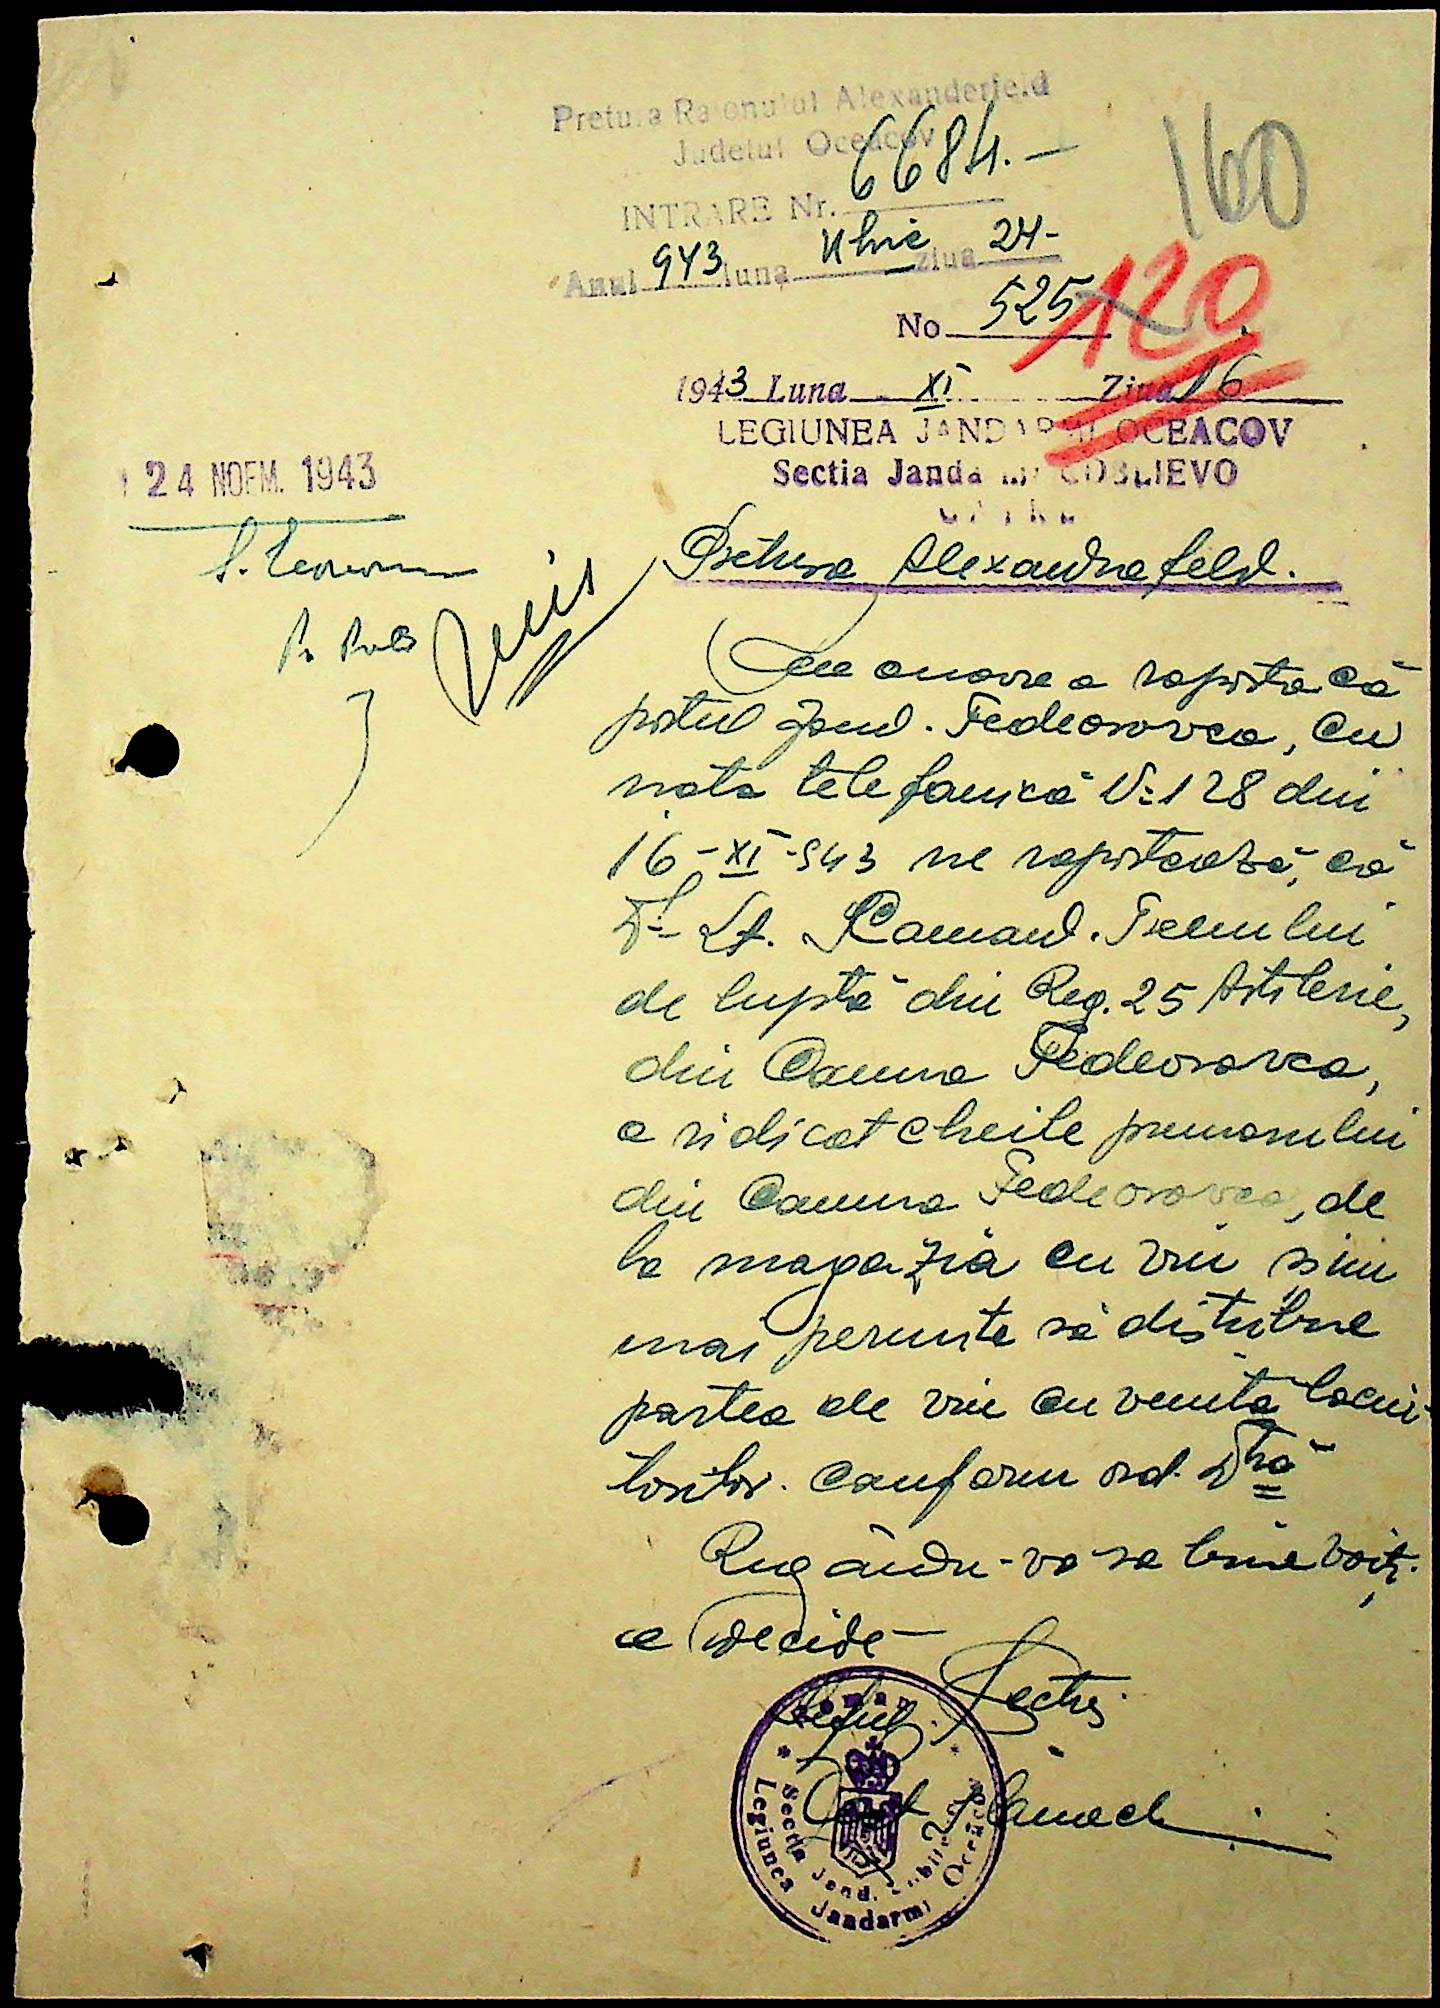 Pretura Raionului Alexanderfeld
Judetul Oceacov
INTRARE Nr. 6684.-
160
Anul 943 luna Nbrie ziua 24-
No 525
120
1943 Luna XI Ziua 16
LEGIUNEA JANDARMI OCEACOV
Sectia Jandarmi COBLIEVO
CATRE
24 NOEM. 1943
Pretura Alexandrafeld.
Am onoare a raporta că
postul Jand. Fedeorovca, cu
nota telefonică No 128 din
16-XI-943 ne raportează, că
Dl. Lt. Comand. Trenului
de luptă din Reg. 25 Artilerie,
din Comuna Fedeorovca,
a ridicat cheile primarului
din Comuna Fedeorovca, de
la magazia cu vin și nu
mai permite să distribue
partea de vin cuvenită locui-
torilor. conform ord. Dvră
Rugându-va sa bine voiți
a decide -
Șeful Secției
Roman
Sectia Jand.
Legiunea Jandarmi Oceacov